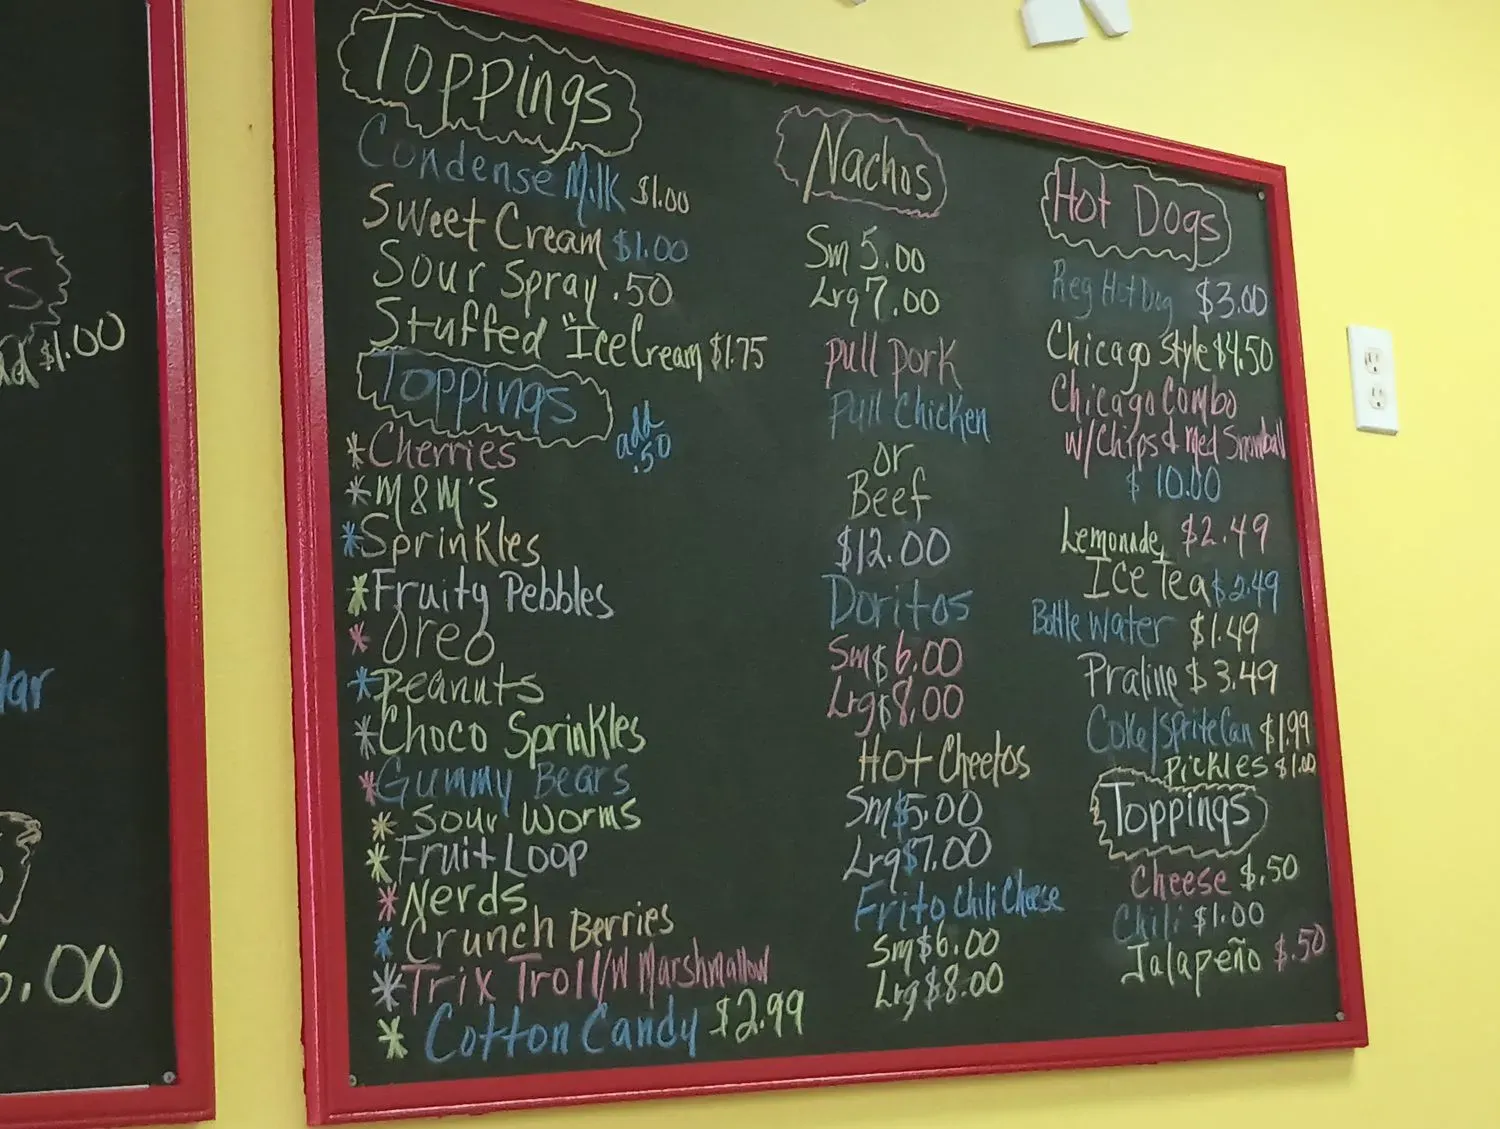 s
ad $1.00
lar
6.00
Toppings
Condense Milk $1.00
Sweet Cream $1.00
Sour Spray .50
Stuffed "Ice Cream $1.75
Toppings
add
.50
*Cherries
*M&M's
*Sprinkles
*Fruity Pebbles
*Oreo
*Peanuts
*Choco Sprinkles
*Gummy Bears
*Sour Worms
*Fruit Loop
*Nerds
*Crunch Berries
*Trix Troll/W Marshmallow
*Cotton Candy $2.99
Nachos
Sm 5.00
Lrg 7.00
Pull Pork
Pull Chicken
or
Beef
$12.00
Doritos
Sm $6.00
Lrg $8.00
Hot Cheetos
Sm $5.00
Lrg $7.00
Frito Chili Cheese
Sm $6.00
Lrg $8.00
Hot Dogs
Reg Hot Dog $3.00
Chicago Style $4.50
Chicago Combo
w/Chips & Med Snowball
$10.00
Lemonade $2.49
Ice Tea $2.49
Bottle Water $1.49
Praline $3.49
Coke/Sprite Can $1.99
Pickles $1.00
Toppings
Cheese $.50
Chili $1.00
Jalapeño $.50